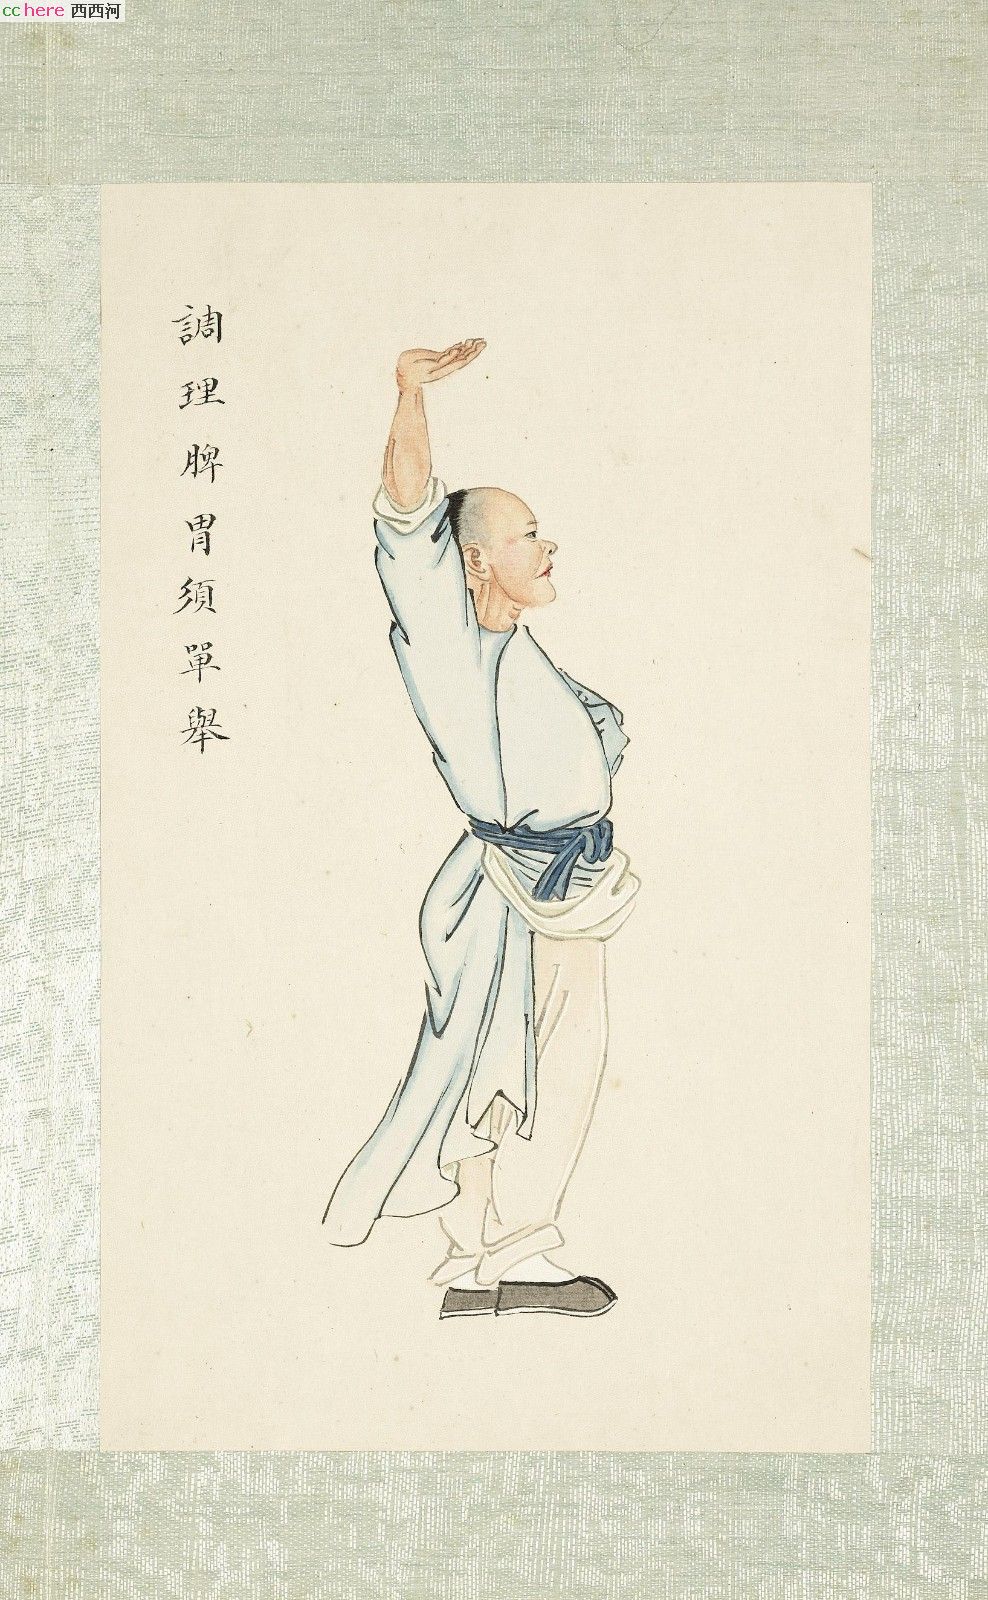 cchere 西西河
調理脾胃須單舉